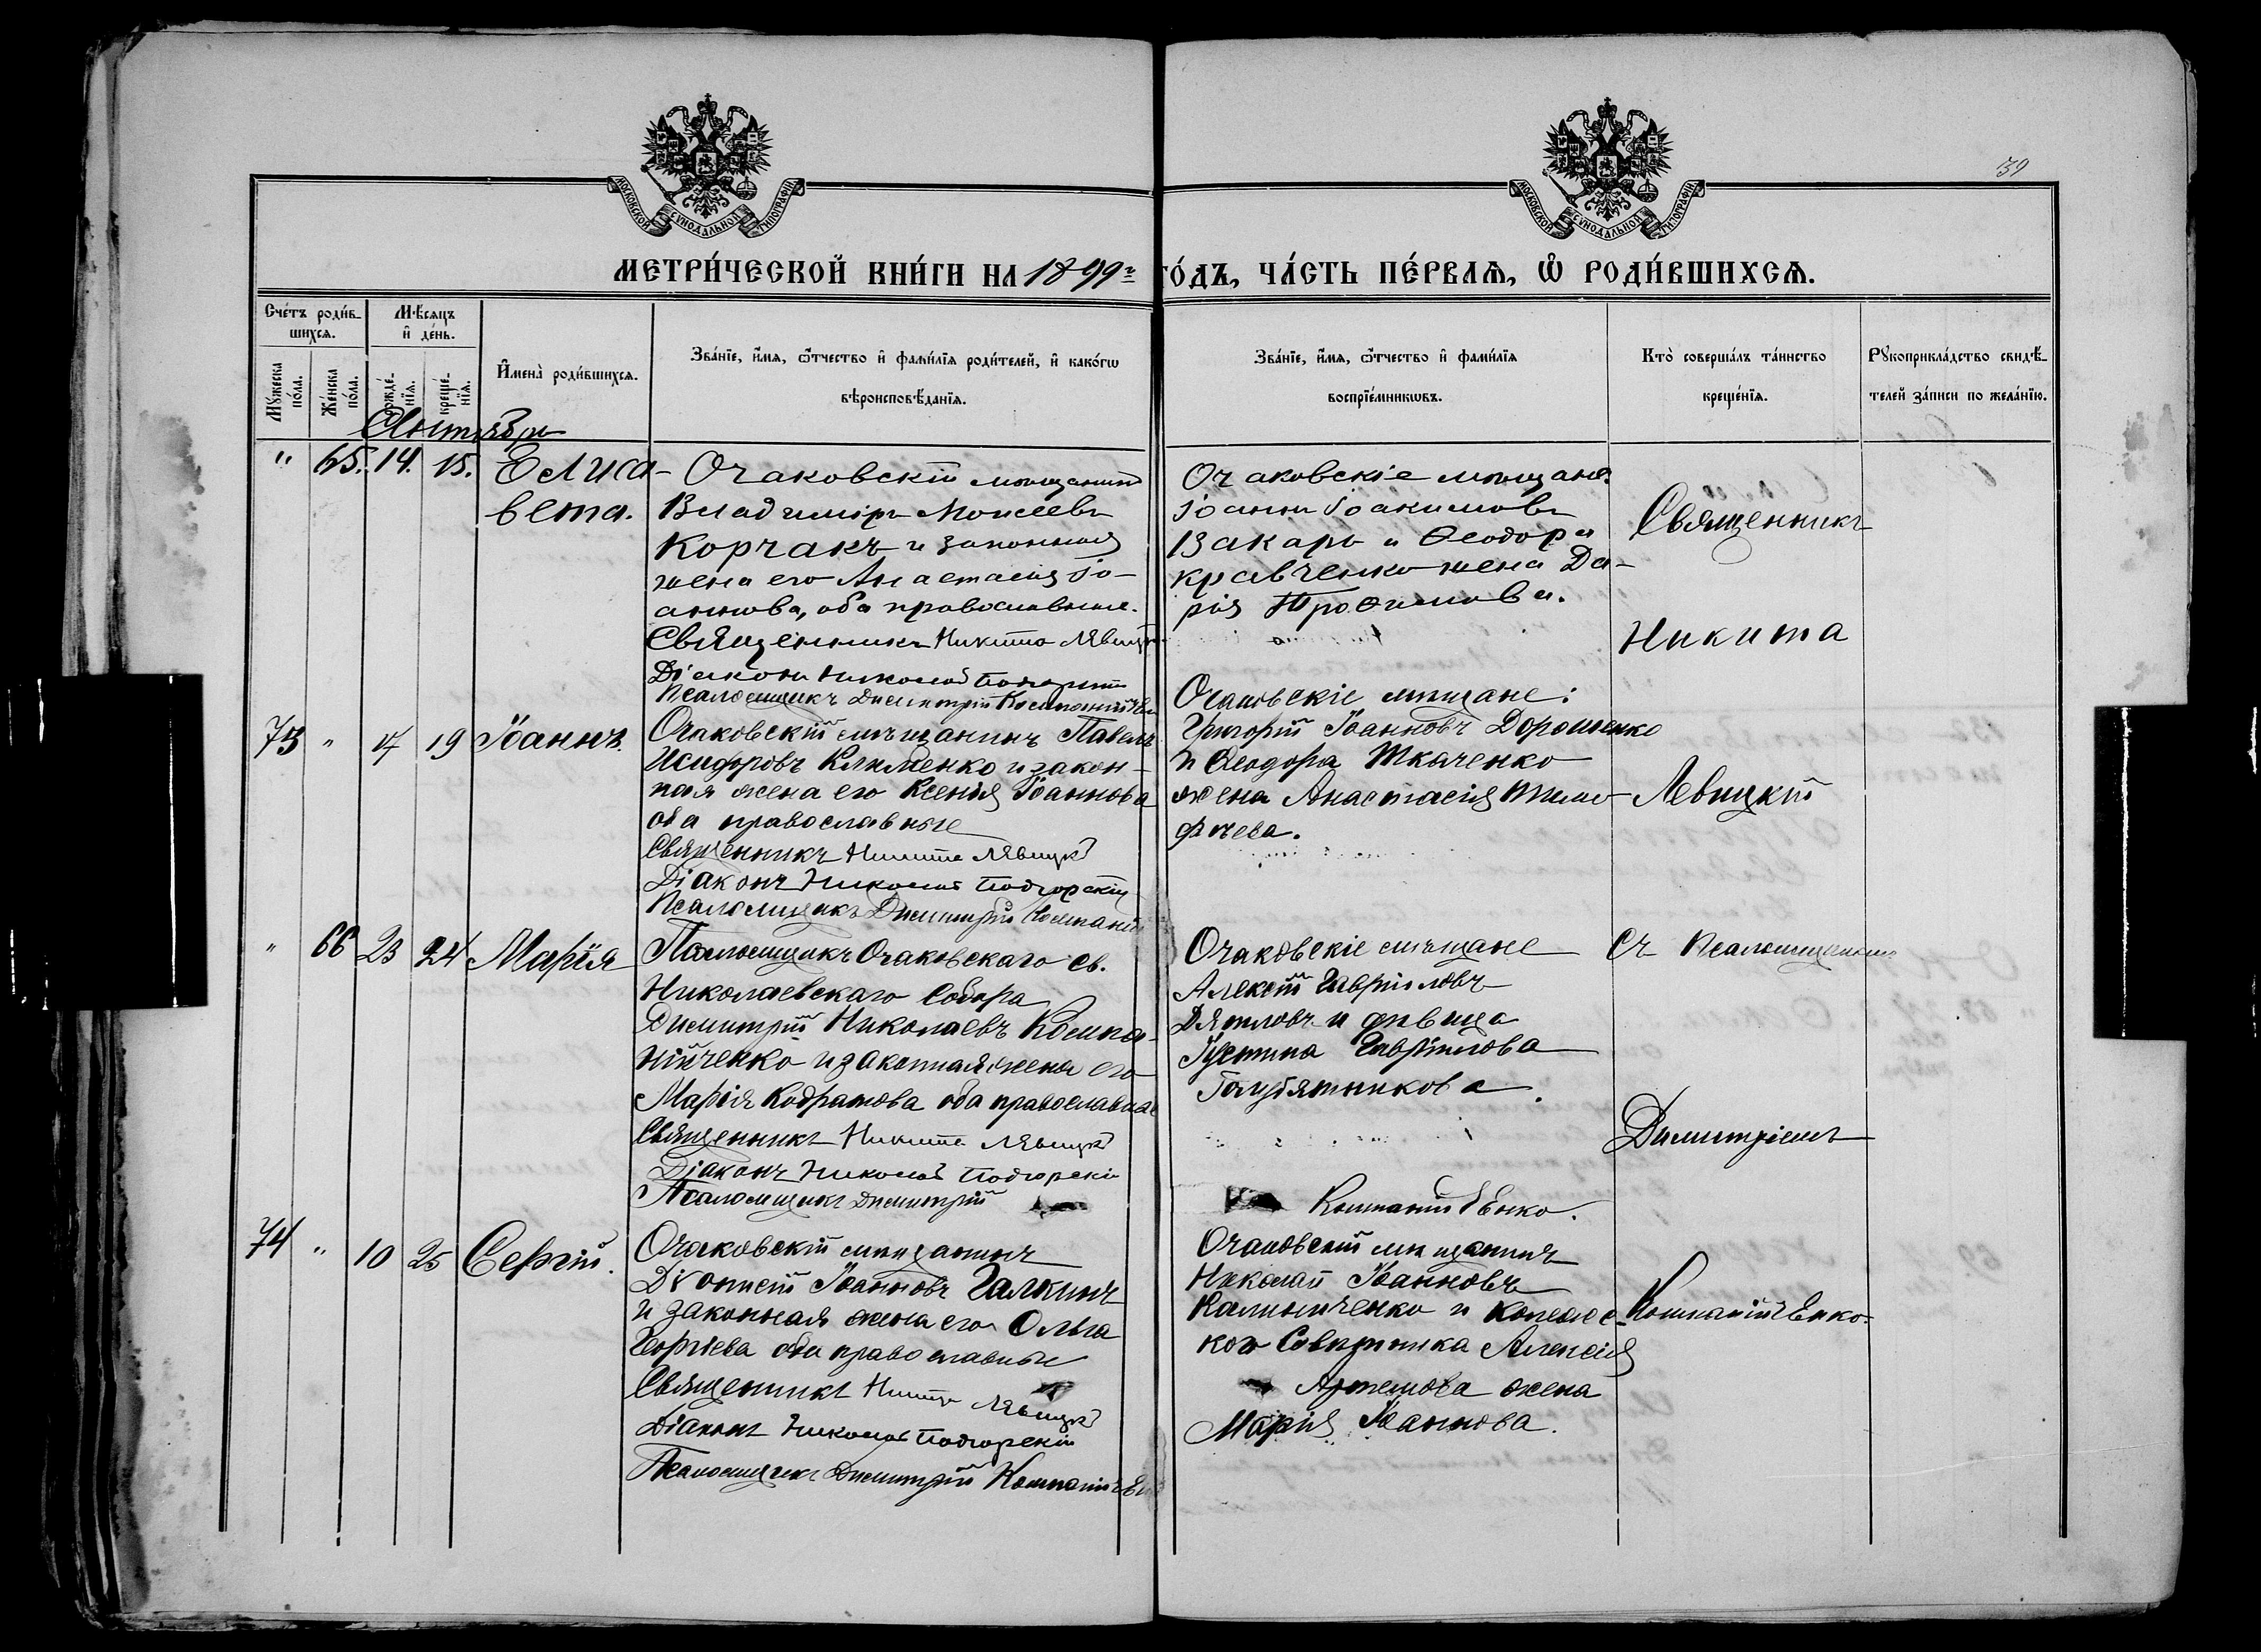 39
МОСКОВСКОЙ СѴНОДАЛЬНОЙ ТИПОГРАФІИ
МОСКОВСКОЙ СѴНОДАЛЬНОЙ ТИПОГРАФІИ
МЕТРИ́ЧЕСКОЙ КНИ́ГИ НА 1899 г҃ ГО́ДЪ, ЧА́СТЬ ПЕ́РВАѦ, Ѡ҆ РОДИ́ВШИХСѦ.
Сче́тъ роди́в-
шихсѧ.
Мѣ́сѧцъ
и҆ де́нь.
Мꙋ́жеска
по́ла.
Же́нска
по́ла.
рожде́-
нїѧ.
креще́-
нїѧ.
И҆мена̀ роди́вшихсѧ.
Зва́нїе, и҆́мѧ, ѻ҆́тчество и҆ фами́лїѧ роди́телей, и҆ како́гѡ
вѣроисповѣ́данїѧ.
Зва́нїе, и҆́мѧ, ѻ҆́тчество и҆ фами́лїѧ
воспрїе́мникѡвъ.
Кто̀ соверша́лъ та́инство
креще́нїѧ.
Рꙋкоприкла́дство свидѣ́-
телей за́писи по жела́нїю.
" 65. 14. 15. Елиса-
вета.
Очаковскій мѣщанинъ
Владиміръ Моисеевъ
Корчакъ и законная
жена его Анастасія Іо-
аннова, оба православные.
Священникъ Никита Лѣвицкій
Діаконъ Николай Подгорскій
Псаломщикъ Димитрій
Очаковскіе мѣщане
Іоаннъ Іоакимовъ
и Ѳеодора
Кравченко жена Да-
рія Троѳимова.
Священникъ
Никита
Лѣвицкій
73 " 17 19 Іоаннъ.
Очаковскій мѣщанинъ Павелъ
Исидоровъ Клименко и закон-
ная жена его Ксенія Іоаннова
оба православные
Священникъ Никита Лѣвицкій
Діаконъ Николай Подгорскій
Псаломщикъ Димитрій
Очаковскіе мѣщане:
Григорій Іоанновъ Дорошенко
и Ѳеодора Ткаченко
жена Анастасія Тимо-
ѳеева.
" 66 23 24 Марія
Псаломщикъ Очаковскаго Св.
Николаевскаго Собора
Димитрій Николаевъ Компа-
нійченко и законная жена его
Марія Кодратова оба православные
Священникъ Никита Лѣвицкій
Діаконъ Николай Подгорскій
Псаломщикъ Димитрій
Компанійченко.
Очаковскіе мѣщане
Алексій Гавріиловъ
Дятловъ и дѣвица
Іустина Гавріилова
Голубятникова.
Съ Псаломщикомъ
Димитріемъ
Компанійченко.
74 " 10 25 Сергій.
Очаковскій мѣщанинъ
Діонисій Іоанновъ Галкинъ
и законная жена его Ольга
Георгіева оба православные
Священникъ Никита Лѣвицкій
Діаконъ Николай Подгорскій
Псаломщикъ Димитрій
Очаковскій мѣщанинъ
Николай Іоанновъ
Калиниченко и Коллежс-
кого Совѣтника Алексія
Артемова жена
Марія Іоаннова.